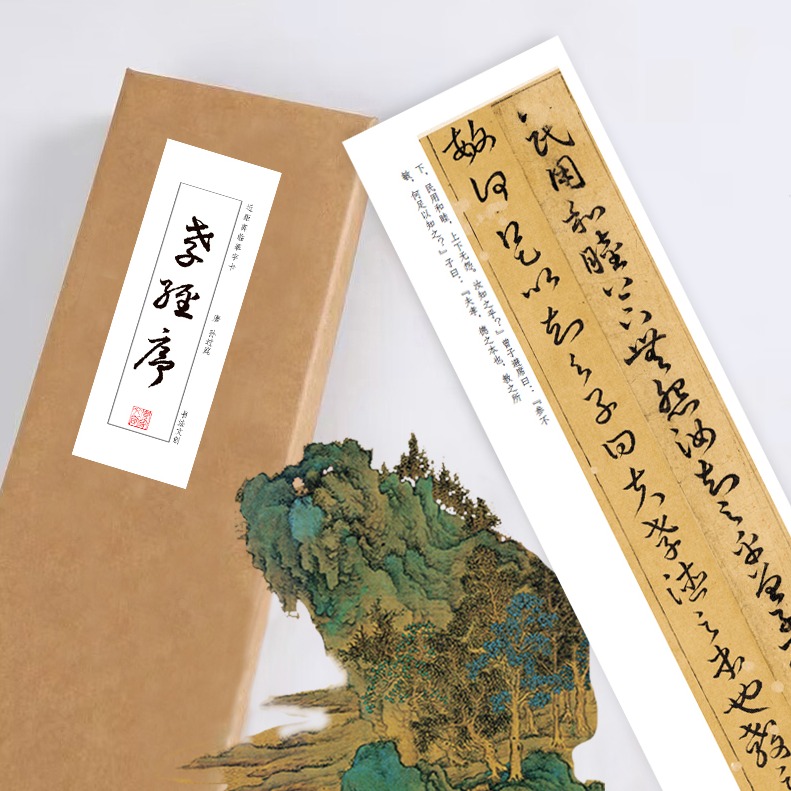 近距离临摹字卡
唐 孙过庭
书法文创
孝經序
民用和睦上下無怨汝知之乎曾子
敏何足以知之子曰夫孝德之本也教之
下，民用和睦，上下无怨。汝知之乎？』曾子避席曰：『参不
敏，何足以知之？』子曰：『夫孝，德之本也，教之所